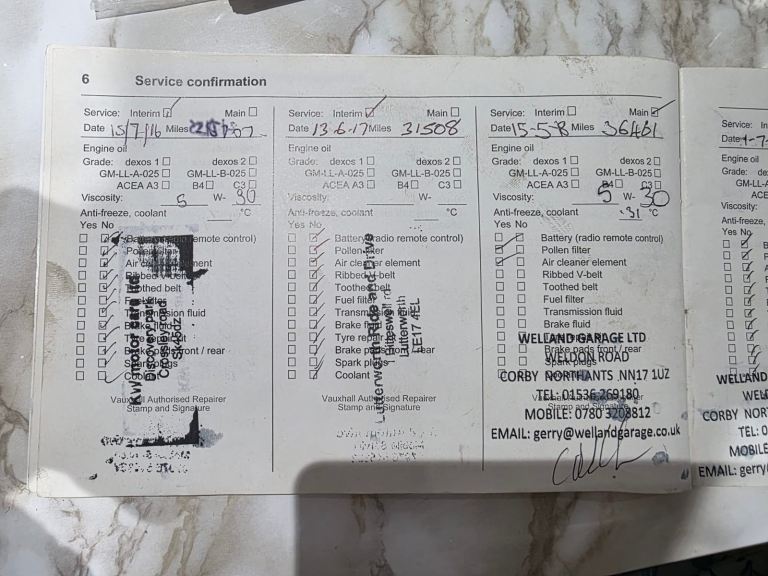 6 Service confirmation
Service: Interim Main
Date 15/7/16 Miles
Engine oil
Grade: dexos 1 dexos 2
GM-LL-A-025 GM-LL-B-025
ACEA A3 B4 C3
Viscosity: 5 W- 30
Anti-freeze, coolant °C
Yes No
Battery (radio remote control)
Pollen filter
Air cleaner element
Ribbed V-belt
Toothed belt
Fuel filter
Transmission fluid
Brake fluid
Brake pads front / rear
Spark plugs
Coolant
Discovery park
Crossley road
SK45DZ
Vauxhall Authorised Repairer
Stamp and Signature
Service: Interim Main
Date 13-6-17 Miles 31508
Engine oil
Grade: dexos 1 dexos 2
GM-LL-A-025 GM-LL-B-025
ACEA A3 B4 C3
Viscosity: W-
Anti-freeze, coolant °C
Yes No
Battery (radio remote control)
Pollen filter
Air cleaner element
Ribbed V-belt
Toothed belt
Fuel filter
Transmission fluid
Brake fluid
Tyre repair
Brake pads front / rear
Spark plugs
Coolant
Lutterworth Ride and Drive
Lutterworth
LE17 4EL
Vauxhall Authorised Repairer
Stamp and Signature
Service: Interim Main
Date 15-5-8 Miles 36461
Engine oil
Grade: dexos 1 dexos 2
GM-LL-A-025 GM-LL-B-025
ACEA A3 B4 C3
Viscosity: 5 W- 30
Anti-freeze, coolant -31 °C
Yes No
Battery (radio remote control)
Pollen filter
Air cleaner element
Ribbed V-belt
Toothed belt
Fuel filter
Transmission fluid
Brake fluid
Brake pads front / rear
Spark plugs
WELLAND GARAGE LTD
WELDON ROAD
CORBY NORTHANTS .NN17 1UZ
TEL: 01536 269180
MOBILE: 0780 3208812
EMAIL: gerry@wellandgarage.co.uk
Stamp and Signature
Service:
Date
Engine oil
Grade:
GM-LL-A
ACEA
Viscosity:
Anti-freeze,
Yes No
WELLAND
WEL
CORBY NOR
TEL: 0
MOBILE
EMAIL: gerry